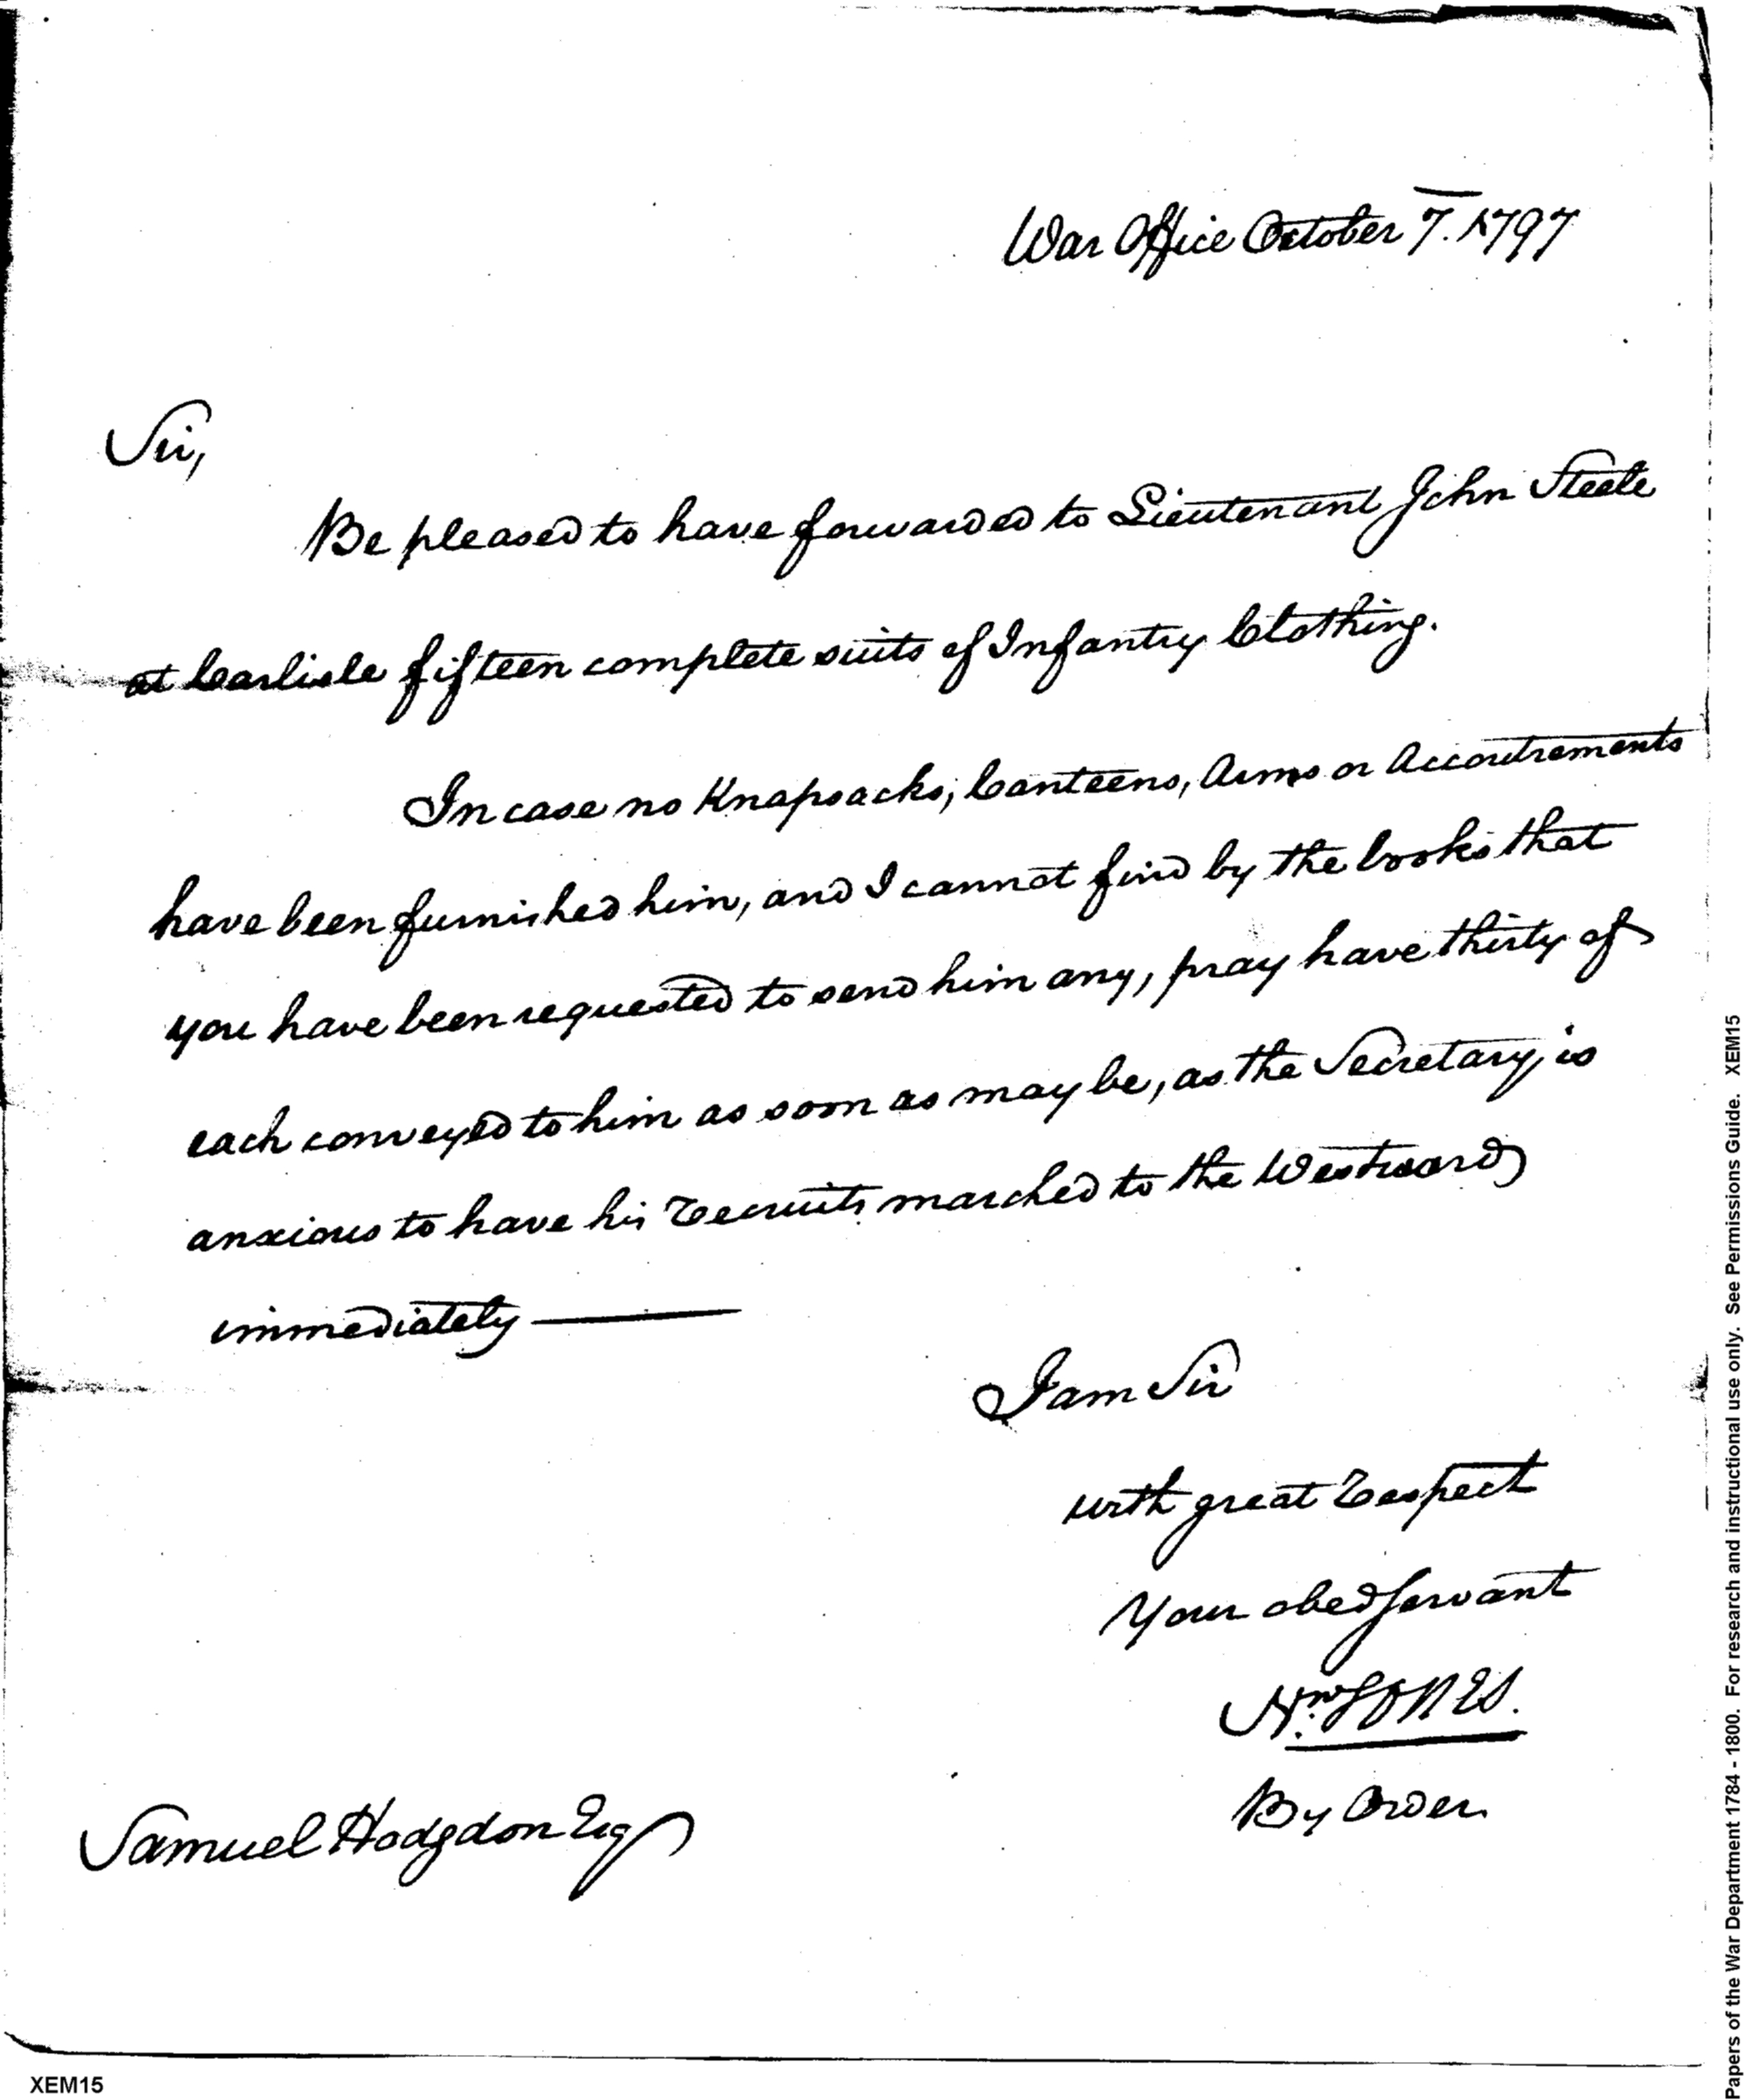 War Office October 7. 1797
Sir,
Be pleased to have forwarded to Lieutenant John Steele
at Carlisle fifteen complete suits of Infantry Clothing.
In case no Knapsacks, Canteens, Arms or Accoutrements
have been furnished him, and I cannot find by the books that
you have been requested to send him any, pray have thirty of
each conveyed to him as soon as may be, as the Secretary is
anxious to have his Recruits marched to the Westward
immediately —
I am Sir
with great Respect
Your obed Servant
Wm Jones.
By Order
Samuel Hodgdon Esq
XEM15
Papers of the War Department 1784 - 1800. For research and instructional use only. See Permissions Guide. XEM15